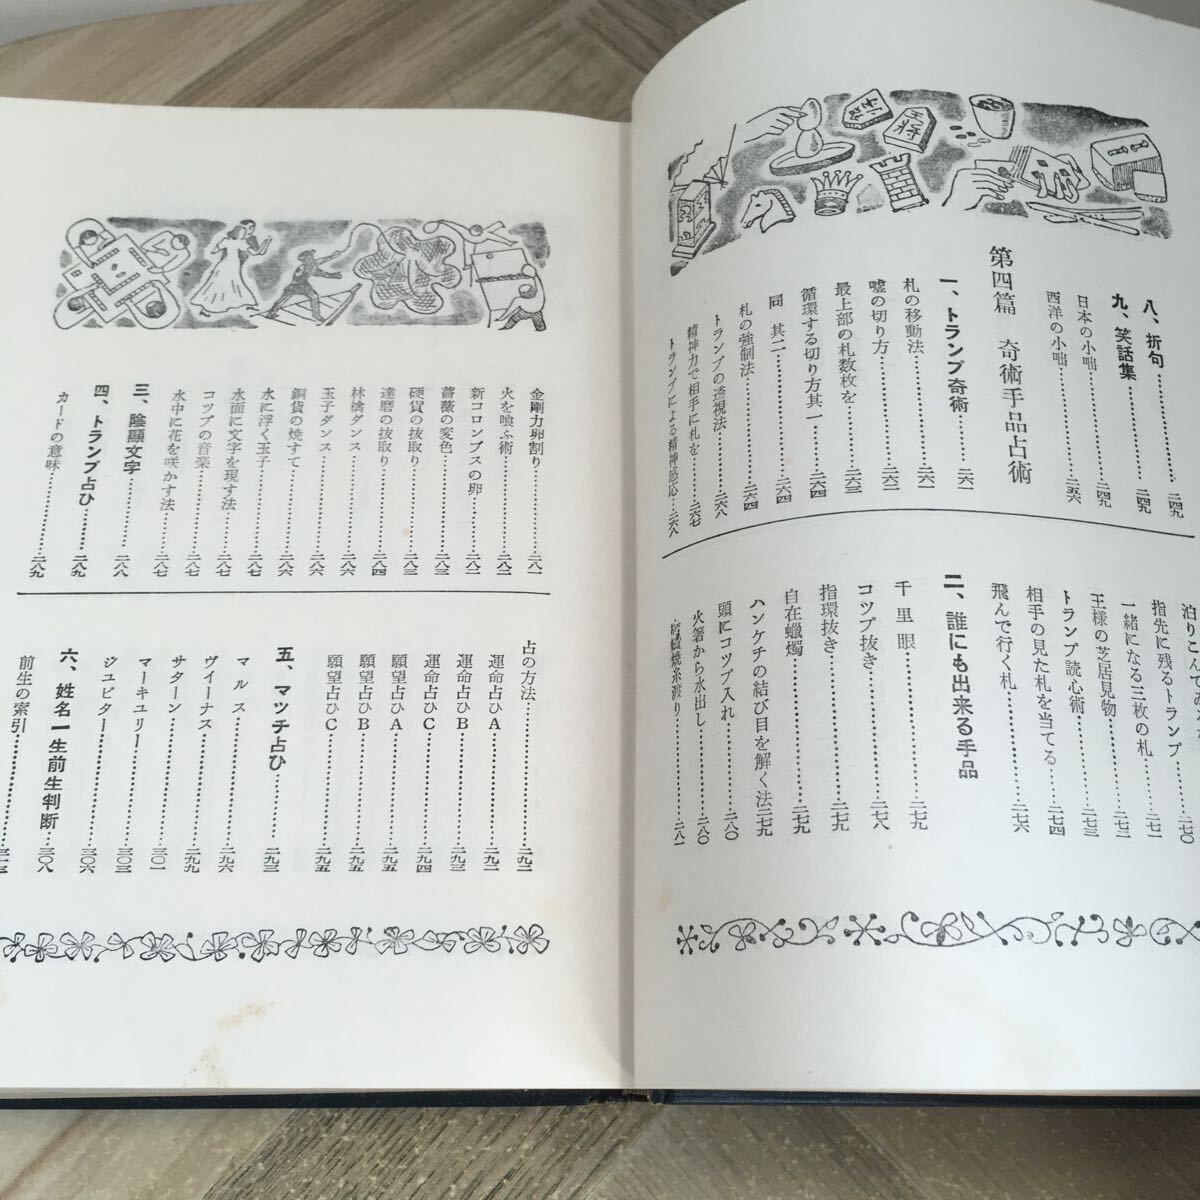 王将
八、折句……………二四九
九、笑話集……………二四九
日本の小咄……………二四九
西洋の小咄……………二五六
第四篇 奇術手品占術
一、トランプ奇術……………二六一
札の移動法……………二六一
嘘の切り方……………二六二
最上部の札数枚を……………二六三
循環する切り方其一……………二六四
同 其二……………二六四
札の強制法……………二六四
トランプの透視法……………二六八
精神力で相手に札を……………二六七
トランプによる精神感応……二六八
指先に残るトランプ……………二七一
一緒になる三枚の札……………二七二
王様の芝居見物……………二七三
トランプ読心術……………二七四
相手の見た札を当てる……………二七四
飛んで行く札……………二七六
二、誰にも出来る手品
千里眼……………二七九
コツプ抜き……………二七八
指環抜き……………二七九
自在蠟燭……………二七九
ハンケチの結び目を解く法二七九
頭にコツプ入れ……………二八〇
火箸から水出し……………二八〇
金剛力卵割り……………二八一
火を喰ふ術……………二八二
新コロンブスの卵……………二八二
薔薇の変色……………二八三
硬貨の抜取り……………二八三
達磨の抜取り……………二八四
林檎ダンス……………二八六
玉子ダンス……………二八六
銅貨の焼すて……………二八六
水に浮く玉子……………二八七
水面に文字を現す法……………二八七
コツプの音楽……………二八七
水中に花を咲かす法……………二八七
三、陰顕文字……………二八八
四、トランプ占ひ……………二八九
カードの意味……………二八九
占の方法……………二九二
運命占ひA……………二九二
運命占ひB……………二九三
運命占ひC……………二九四
願望占ひA……………二九五
願望占ひB……………二九五
願望占ひC……………二九五
五、マツチ占ひ……………二九三
マルス……………二九六
ヴイーナス……………二九九
サターン……………三〇一
マーキユリー……………三〇三
ジユピター……………三〇六
六、姓名一生前生判断……三〇八
前生の索引